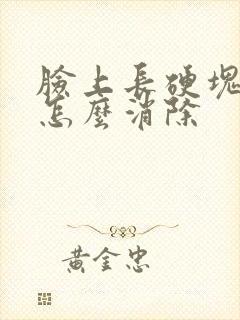 臉上長硬塊
怎麼消除
黃金忠